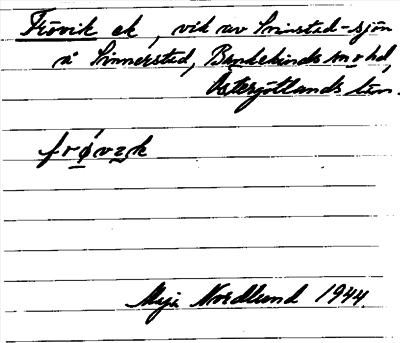 Frövik ek, vid av Svinstad-sjön
å Sinnerstad, Bankekinds sn o hd,
Östergötlands län.
frøvɪk
Maji Nordlund 1944